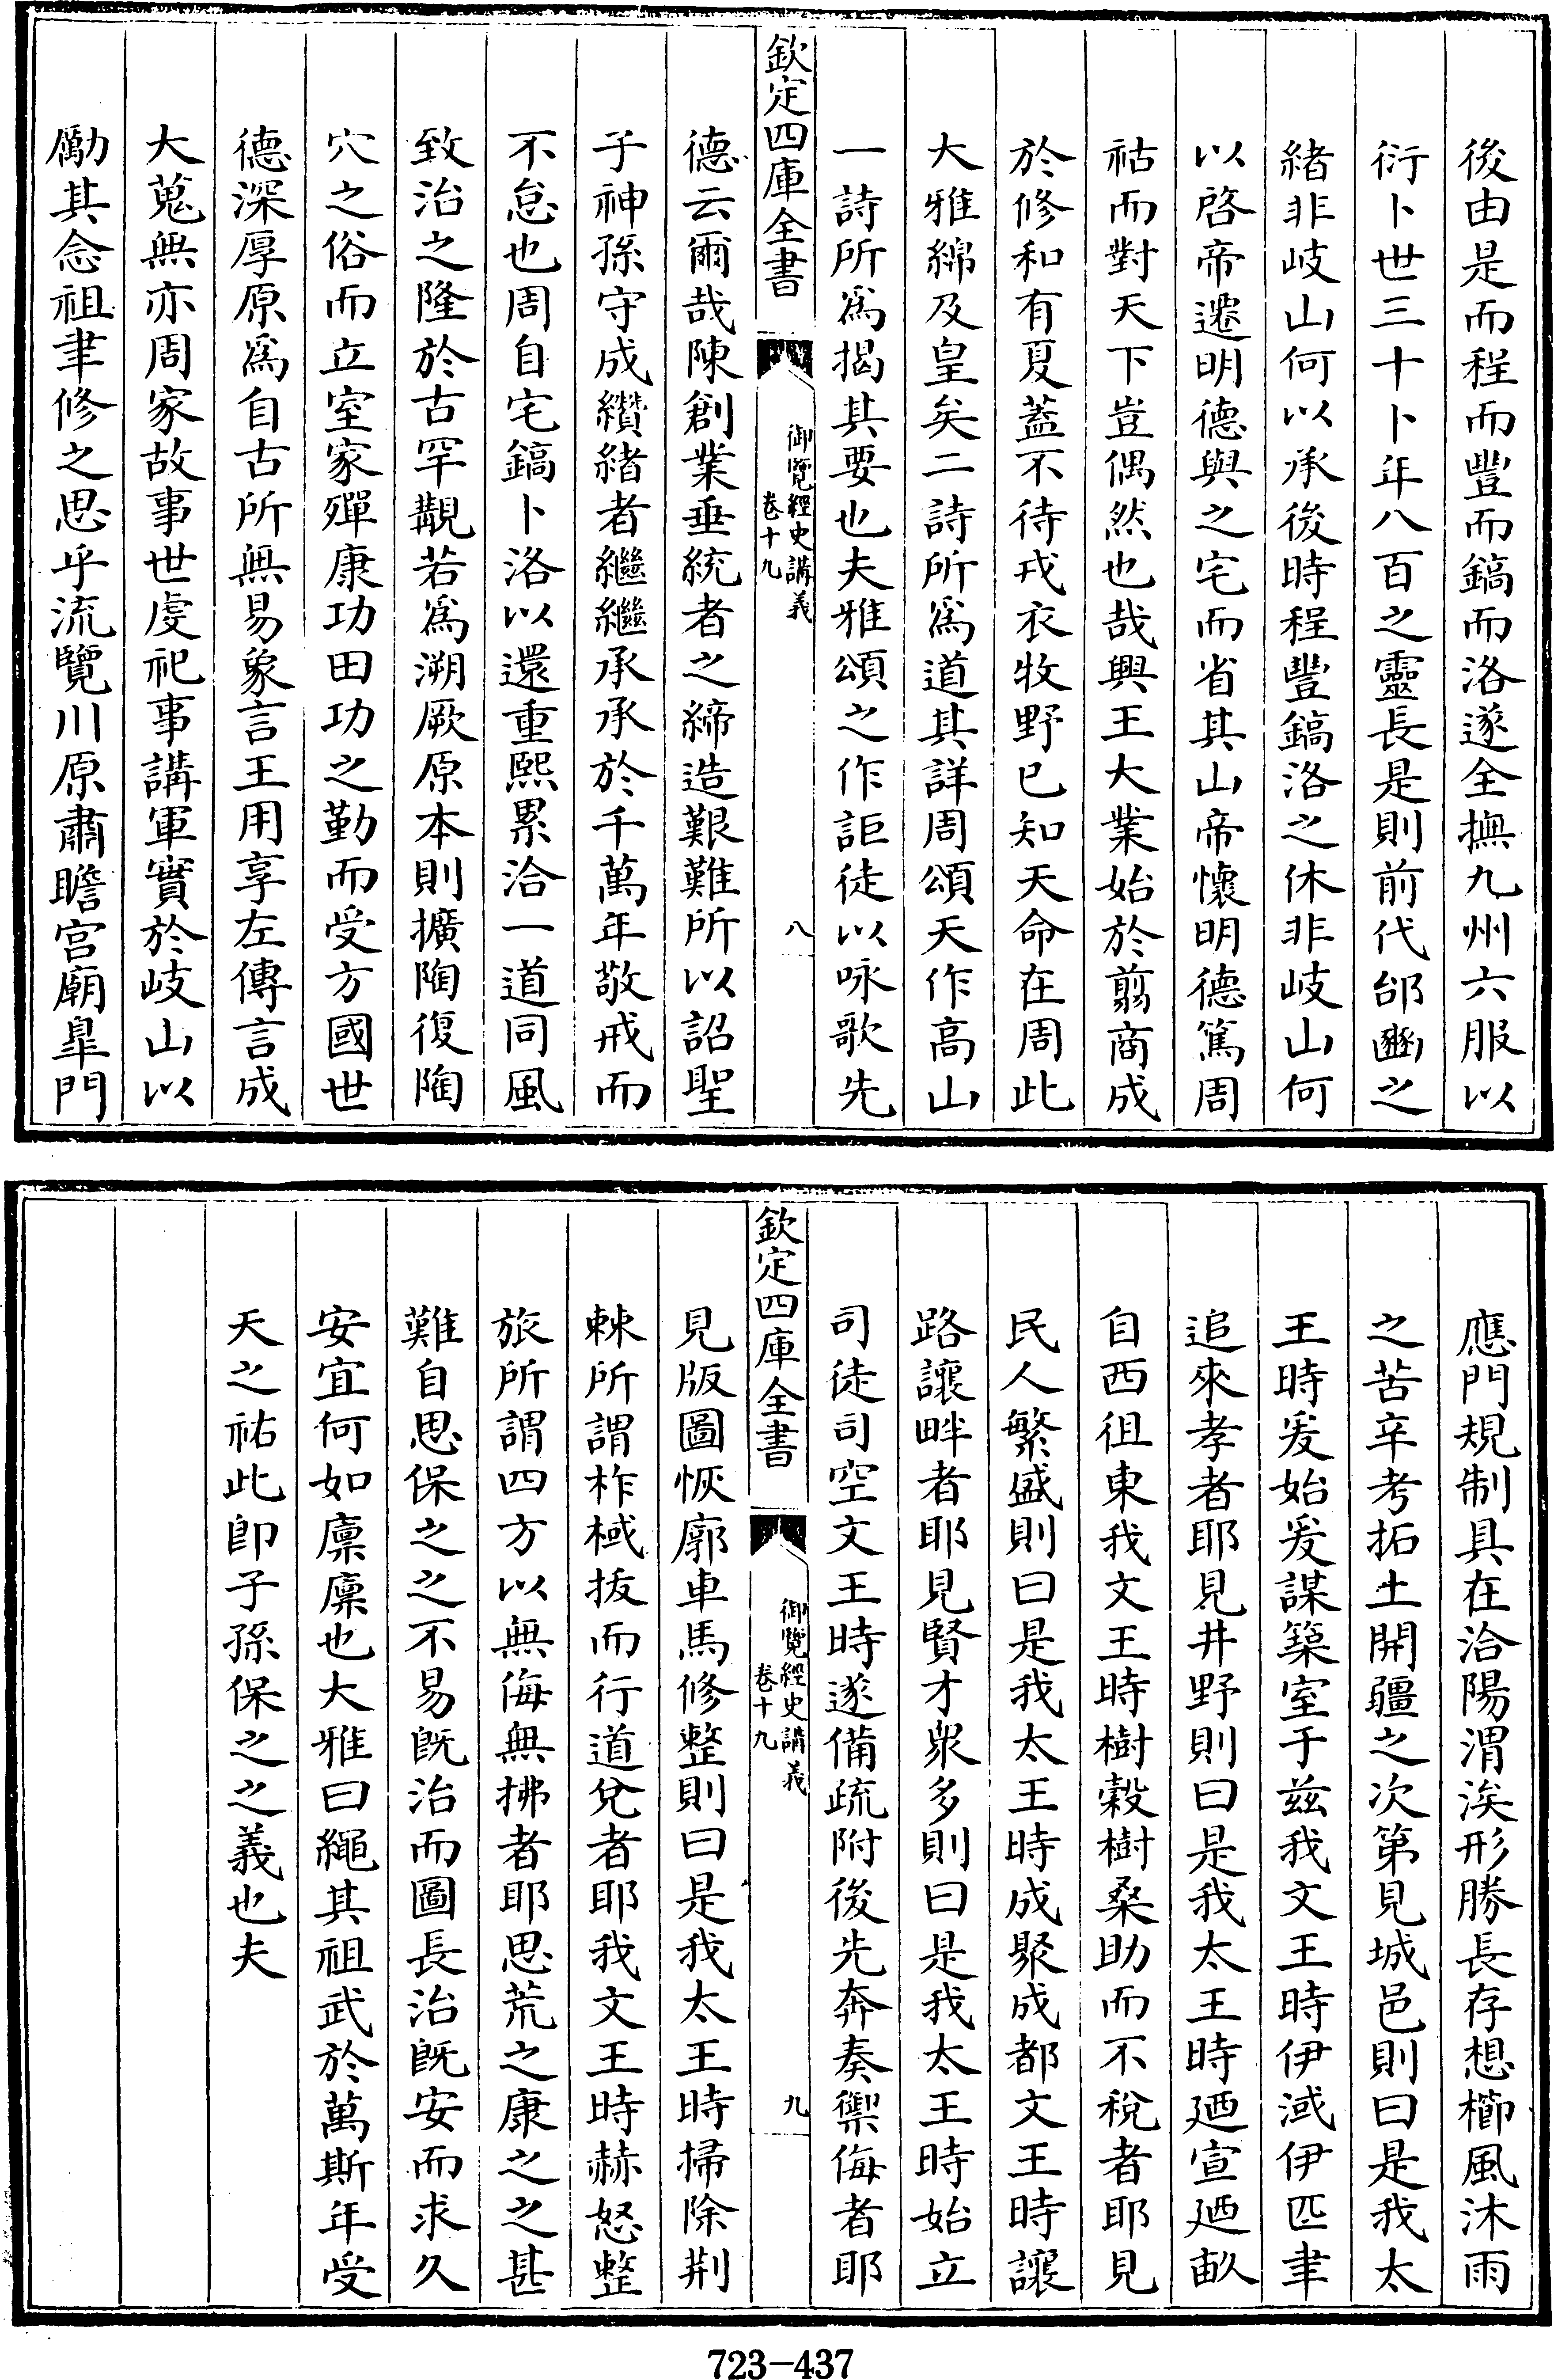 後由是而程而豐而鎬而洛遂全撫九州六服以
衍卜世三十卜年八百之靈長是則前代邰豳之
緒非岐山何以承後時程豐鎬洛之休非岐山何
以啓帝遷明德與之宅而省其山帝懷明德篤周
祜而對天下豈偶然也哉興王大業始於翦商成
於修和有夏蓋不待戎衣牧野已知天命在周此
大雅緜及皇矣二詩所為道其詳周頌天作高山
一詩所為揭其要也夫雅頌之作詎徒以咏歌先
欽定四庫全書
御覽經史講義
卷十九
八
德云爾哉陳創業垂統者之締造艱難所以詔聖
子神孫守成纘緒者繼繼承承於千萬年敬戒而
不怠也周自宅鎬卜洛以還重熙累洽一道同風
致治之隆於古罕覯若為溯厥原本則擴陶復陶
穴之俗而立室家殫康功田功之勤而受方國世
德深厚原為自古所無易象言王用享左傳言成
大蒐無亦周家故事世虔祀事講軍實於岐山以
勵其念祖聿修之思乎流覽川原肅瞻宮廟臯門
應門規制具在洽陽渭涘形勝長存想櫛風沐雨
之苦辛考拓土開疆之次第見城邑則曰是我太
王時爰始爰謀築室于兹我文王時伊淢伊匹聿
追來孝者耶見井野則曰是我太王時廼宣廼畝
自西徂東我文王時樹穀樹桑助而不稅者耶見
民人繁盛則曰是我太王時成聚成都文王時讓
路讓畔者耶見賢才衆多則曰是我太王時始立
司徒司空文王時遂備疏附後先奔奏禦侮者耶
欽定四庫全書
御覽經史講義
卷十九
九
見版圖恢廓車馬修整則曰是我太王時掃除荆
棘所謂柞棫拔而行道兌者耶我文王時赫怒整
旅所謂四方以無侮無拂者耶思荒之康之之甚
難自思保之之不易既治而圖長治既安而求久
安宜何如廩廩也大雅曰繩其祖武於萬斯年受
天之祐此卽子孫保之之義也夫
723-437